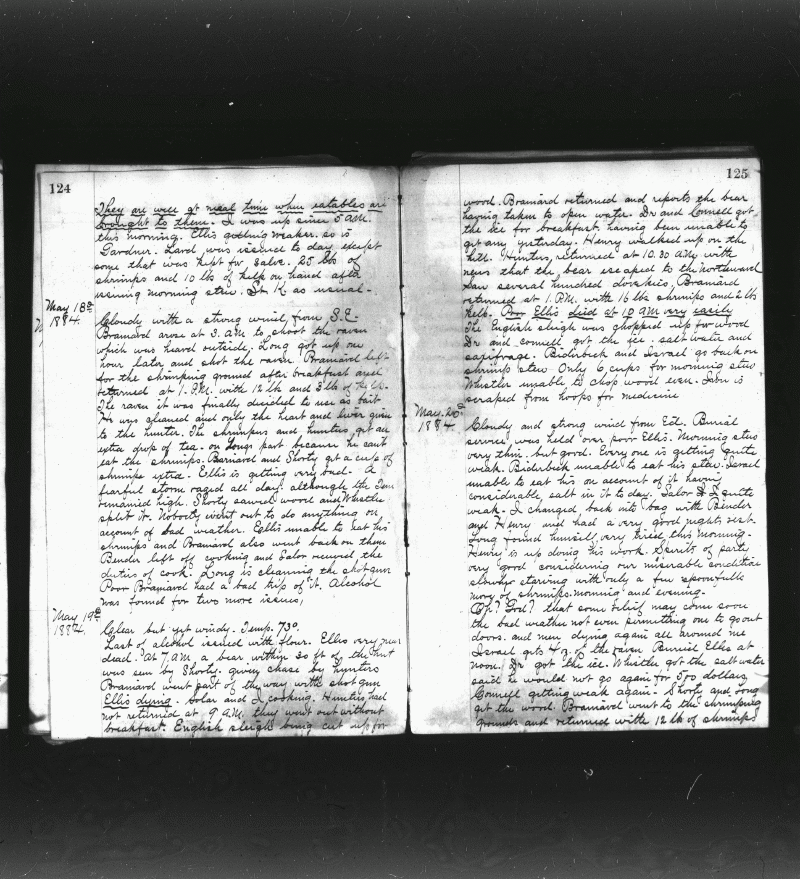 124
They are well at meal time when eatables are
brought to them. I was up since 5 A.M.
this morning. Ellis getting weaker. so is
Gardner. Lard was issued to day except
some that was kept for salve. 25 lbs of
shrimps and 10 lbs of kelp on hand after
issuing morning stew. as usual.
May 18th
1884.
Cloudy with a strong wind, from S.E.
Brainard arose at 3. A.M to shoot the raven
which was heard outside, Long got up an
hour later and shot the raven. Brainard left
for the shrimping ground after breakfast and
returned at 1. P.M. with 12 lbs and 3 lbs of kelp.
The raven it was finally decided to use as bait
He was cleaned and only the heart and liver given
to the hunter. The shrimpers and hunters get an
extra drop of tea. on Longs part because he cant
eat the shrimps. Barnard and Shorty get a cup of
shrimps extra. Ellis is getting very bad. A
fearful storm raged all day. although the
remained high. Shorty sawed wood and Whistler
split it. Nobody went out to do anything on
account of bad weather. Ellis unable to eat his
shrimps and Brainard also went back on them
Bender left off cooking and Salor the
duties of cook. Long is cleaning the shotgun
Poor Brainard had a bad trip of it. Alcohol
was found for two more issues,
May 19th
1884.
Clear but yet windy. Temp. 730.
Last of alcohol issued with flour. Ellis very near
dead. At 7. A.M. a bear within 30 ft of the hut
was seen by Shorty. given chase by hunters
Brainard went part of the way with shotgun
Ellis dying. Salor and I cooking. Hunters had
not returned at 9 A.M. they went out without
breakfast. English sleigh being cut up for
125
wood. Brainard returned and reports the bear
having taken to open water. Dr and Connell got
the ice for breakfast, having been unable to
get any yesterday. Henry walked up on the
hill. Hunters, returned at 10.30 A.M. with
news that the bear escaped to the northward
Saw several hundred dovekies, Brainard
returned at 1. P.M. with 16 lbs shrimps and 2 lbs
kelp. Poor Ellis died at 10 A.M very easily
The English sleigh was chopped up for wood
Dr and Connell got the ice. salt water and
saxifrage. Biderbick and Israel go back on
shrimp stew Only 6 cups for morning stew
Whistler unable to chop wood even. Iron is
scraped from hoops for medicine
May. 20th
1884.
Cloudy and strong wind from Est. Burial
service, was held over poor Ellis. Morning stew
very thin. but good. Every one is getting quite
weak. Biderbick unable to eat his stew. Israel
unable to eat his on account of it having
considerable, salt in it to day. Salor & I quite
weak. I changed, back into bag with Bender
and Henry and had a very good nights rest.
Long found himself, very tired this morning.
Henry is up doing his work. Spirits of party
very good considering our miserable condition
slowly starving with only a few spoonfulls
more of shrimps morning and evening.
Oh? God? that some relief may come soon
the bad weather not even permitting one to go out
doors. and men dying again all around me
Israel gets 4 oz. of the raven Buried Ellis at
noon. Dr got the ice. Whistler got the salt water
said he would not go again for 500 dollars,
Connell getting weak again. Shorty and Long
got the wood. Brainard went to the shrimping
grounds and returned with 12 lbs of shrimps